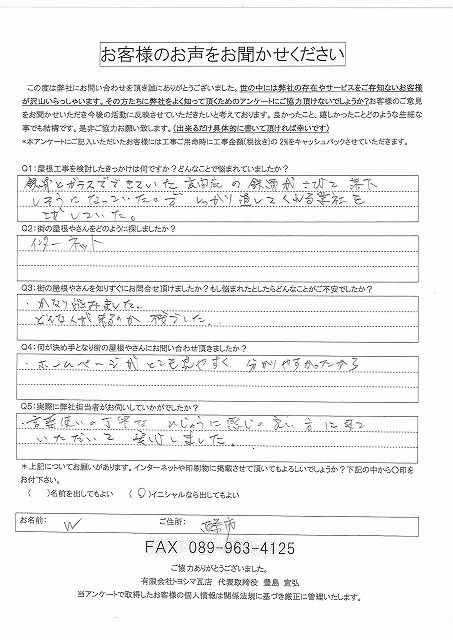 お客様のお声をお聞かせください
この度は弊社にお問い合わせを頂き誠にありがとうございました。世の中には弊社の存在やサービスをご存知ないお客様
が沢山いらっしゃいます。その方たちに弊社をよく知って頂くためのアンケートにご協力頂けないでしょうか？お客様のご意見
をお聞かせいただき今後の活動に反映させていただきたいと考えております。良かったこと、嬉しかったことどのような些細な
事でも結構です。是非ご協力お願い致します。（出来るだけ具体的に書いて頂ければ幸いです）
*本アンケートにご記入いただいたお客様には工事ご用命時に工事金額(税抜き)の 2%をキャッシュバックさせていただきます。
Q1：屋根工事を検討したきっかけは何ですか？どんなことで悩まれていましたか？
鉄骨とガラスでできていた玄関庇の鉄骨がさびて落下
しそうになっていた。しっかり直してくれる業社を
さがしていた。
Q2：街の屋根やさんをどのように探しましたか？
インターネット
Q3：街の屋根やさんを知りすぐにお問合せ頂けましたか？もし悩まれたとしたらどんなことがご不安でしたか？
・かなり悩みました。
どんな人が来るのか 不安でした。
Q4：何が決め手となり街の屋根やさんにお問い合わせ頂きましたか？
・ホームページが とても見やすく 分かりやすかったから
Q5：実際に弊社担当者がお伺いしていかがでしたか？
・言葉使いの丁寧な ひじょうに感じの良い方に来て
いただいて 安心しました。
*上記についてお願いがあります。インターネットや印刷物に掲載させて頂いてもよろしいでしょうか？下記の中から○印を
お付下さい。
( )名前を出してもよい (○)イニシャルなら出してもよい
お名前： W ご住所： 西条市
FAX 089-963-4125
ご協力ありがとうございました。
有限会社トヨシマ瓦店 代表取締役 豊島 宣弘
当アンケートで取得したお客様の個人情報は関係法規に基づき厳正に管理いたします。